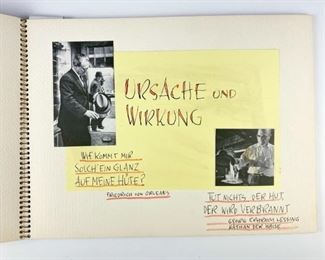 URSACHE UND
WIRKUNG
WIE KOMMT MIR
SOLCH' EIN GLANZ
AUF MEINE HÜTE?
FRIEDRICH VON ORLEANS
TUT NICHTS, DER HUT,
DER WIRD VERBRANNT
GEORG EPHRAIM LESSING
NATHAN DER WEISE